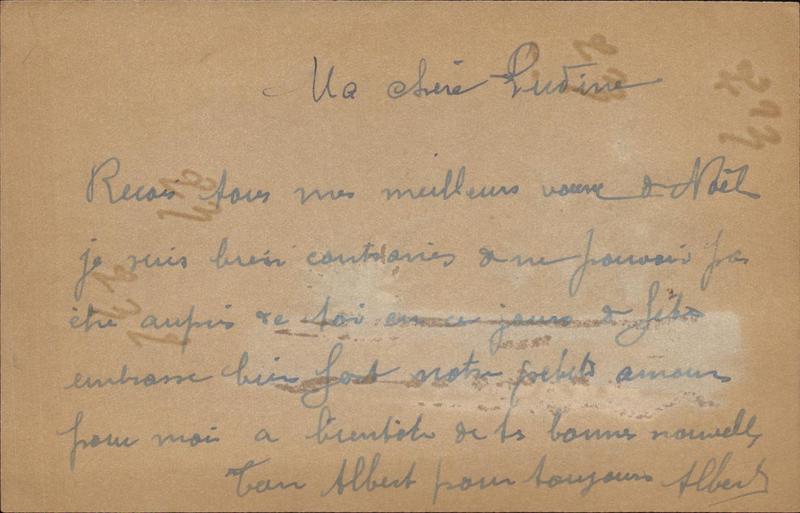 Ma chère Ludine
Recois tous mes meilleurs voeux de Noël
je suis bien contraries de ne pouvoir pas
être aupres de toi en ce jours de fête
embrasse bien fort notre petit amour
pour moi a bientôt de ts bonnes nouvelles
Ton Albert pour toujours Albert